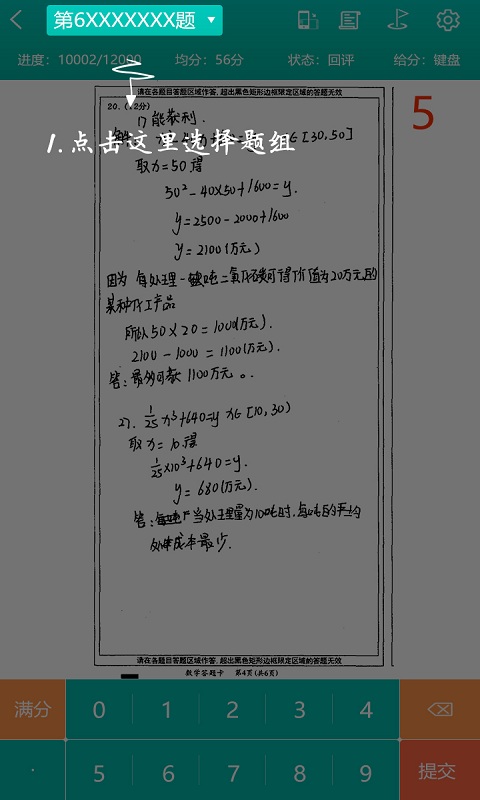 第6XXXXXXX题
进度：10002/12000 均分：56分 状态：回评 给分：键盘
请在各题目答题区域作答，超出黑色矩形边框限定区域的答案无效
20.（12分）
5
1）能获利.
1.点击这里选择题组
∈[30,50]
取x=50得
50²-40×50+1600=y.
y=2500-2000+1600
y=2100(万元)
因为 每处理一吨二氧化碳可得价值为20万元的
某种化工产品
所以50×20=1000(万元).
2100-1000=1100(万元).
答：最多可获1100万元。
2). 1/25 x³+640=y x∈[10,30)
取x=10得
1/25×10³+640=y.
y=680(万元).
答：当处理量为10吨时,每吨的平均
处理成本最少.
请在各题目答题区域作答，超出黑色矩形边框限定区域的答案无效
数学答题卡 第4页(共6页)
满分 0 1 2 3 4
· 5 6 7 8 9 提交